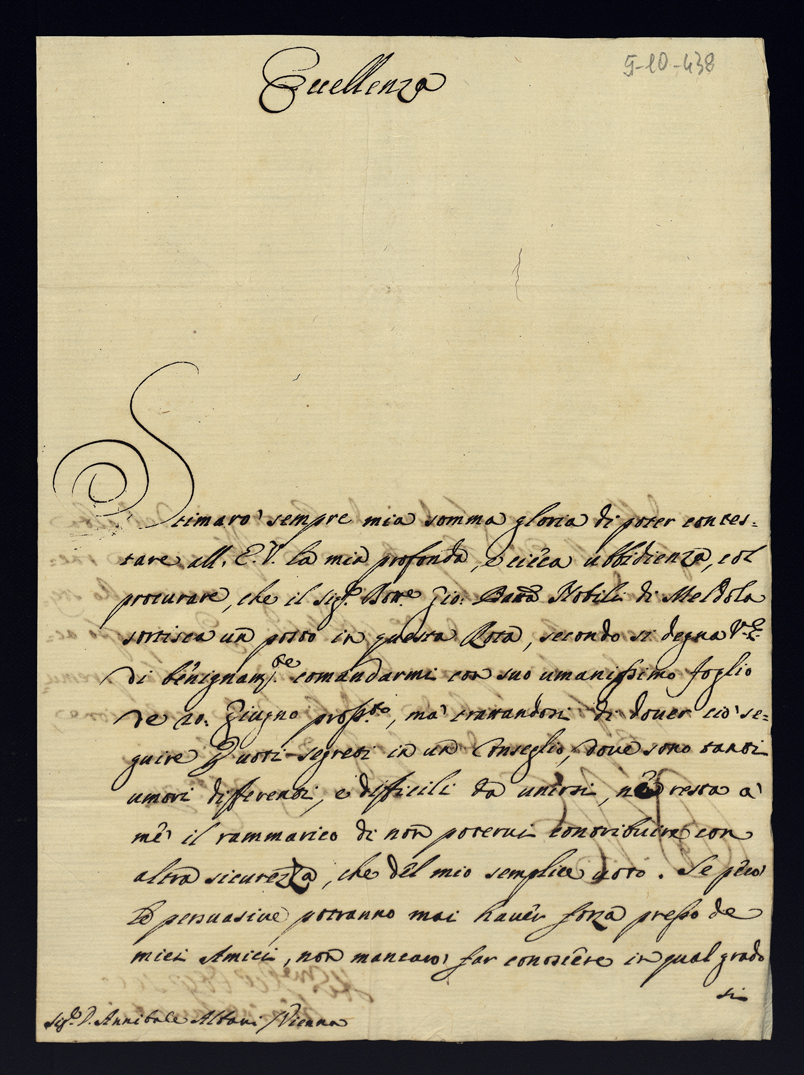 Eccellenza
5-10-438
Stimarò sempre mia somma gloria di poter contes=
tare all' E.V. la mia profonda, e cieca ubbidienza, col
procurare, che il Sig.r Dott.e Gio: Batta Nobili di Meldola
sortisca un posto in questa Rota, secondo si degna V.E.
di benignam.te comandarmi con suo umanissimo foglio
de 20. Giugno pross.to, mà trattandosi di dover ciò se=
guire p voti segreti in un Conseglio, dove sono tanti
umori differenti, e difficili da unirsi, ne resta à
mè il rammarico di non potervi contribuire con
altra sicurezza, che del mio semplice voto. Se però
le persuasive potranno mai haver forza presso de
miei Amici, non mancarò far conoscere in qual grado
si
Sig.r D. Annibale Albani / Vienna